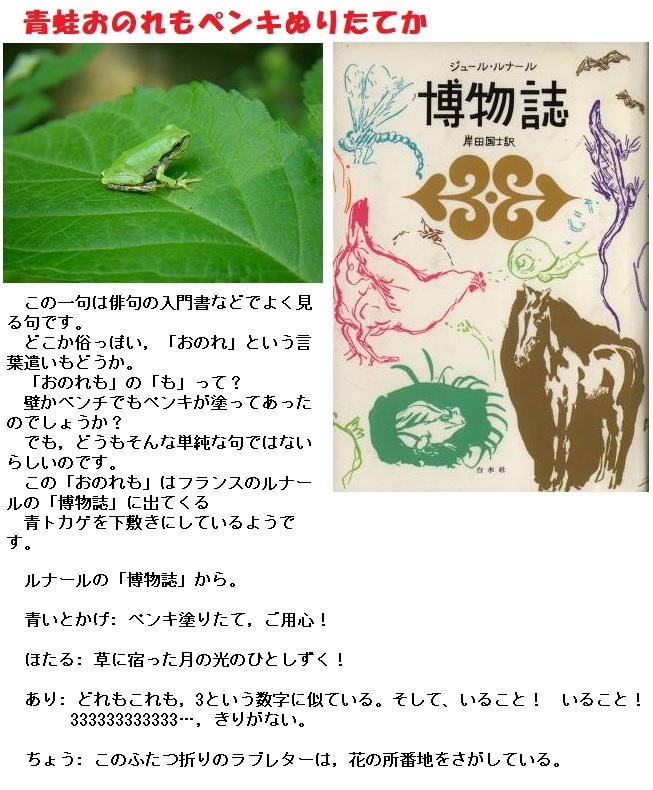 青蛙おのれもペンキぬりたてか
ジュール・ルナール
博物誌
岸田国士訳
白水社
この一句は俳句の入門書などでよく見
る句です。
どこか俗っぽい，「おのれ」という言
葉遣いもどうか。
「おのれも」の「も」って？
壁かベンチでもペンキが塗ってあった
のでしょうか？
でも，どうもそんな単純な句ではない
らしいのです。
この「おのれも」はフランスのルナー
ルの「博物誌」に出てくる
青トカゲを下敷きにしているようで
す。
ルナールの「博物誌」から。
青いとかげ：ペンキ塗りたて，ご用心！
ほたる：草に宿った月の光のひとしずく！
あり：どれもこれも，3という数字に似ている。そして、いること！　いること！
333333333333…，きりがない。
ちょう：このふたつ折りのラブレターは，花の所番地をさがしている。